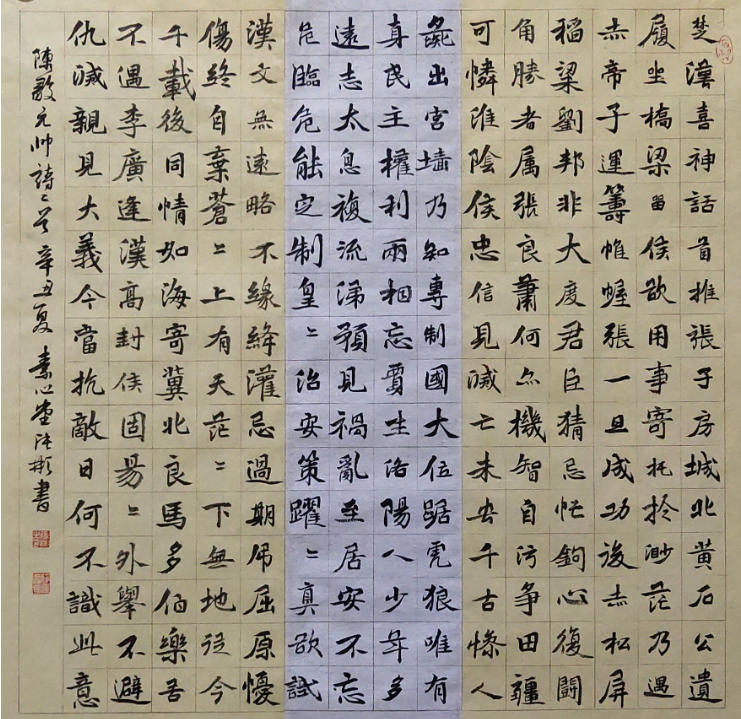 楚漢喜神話首推張子房城北黄石公遺
履坐橋梁留侯欲用事寄托於渺茫乃遇
赤帝子運籌帷幄張一旦成功後赤松屏
稻粱劉邦非大度君臣猜忌忙鉤心復鬭
角勝者属張良蕭何亦機智自污争田疆
可憐淮陰侯忠信見滅亡未央千古慘人
彘出宫墙乃知專制國大位踞虎狼唯有
真民主權利兩相忘賈生洛陽人少年多
遠志太息複流涕預見禍亂至居安不忘
危臨危能定制皇〻治安策躍〻真欲試
漢文無遠略不緣絳灌忌過期吊屈原懮
傷終自棄蒼〻上有天茫〻下無地從今
千載後同情如海寄冀北良馬多伯樂苦
不遇李廣逢漢高封侯固易〻外舉不避
仇滅親見大義今當抗敵日何不識此意
陳毅元帥詩二首辛丑夏素心堂彬書